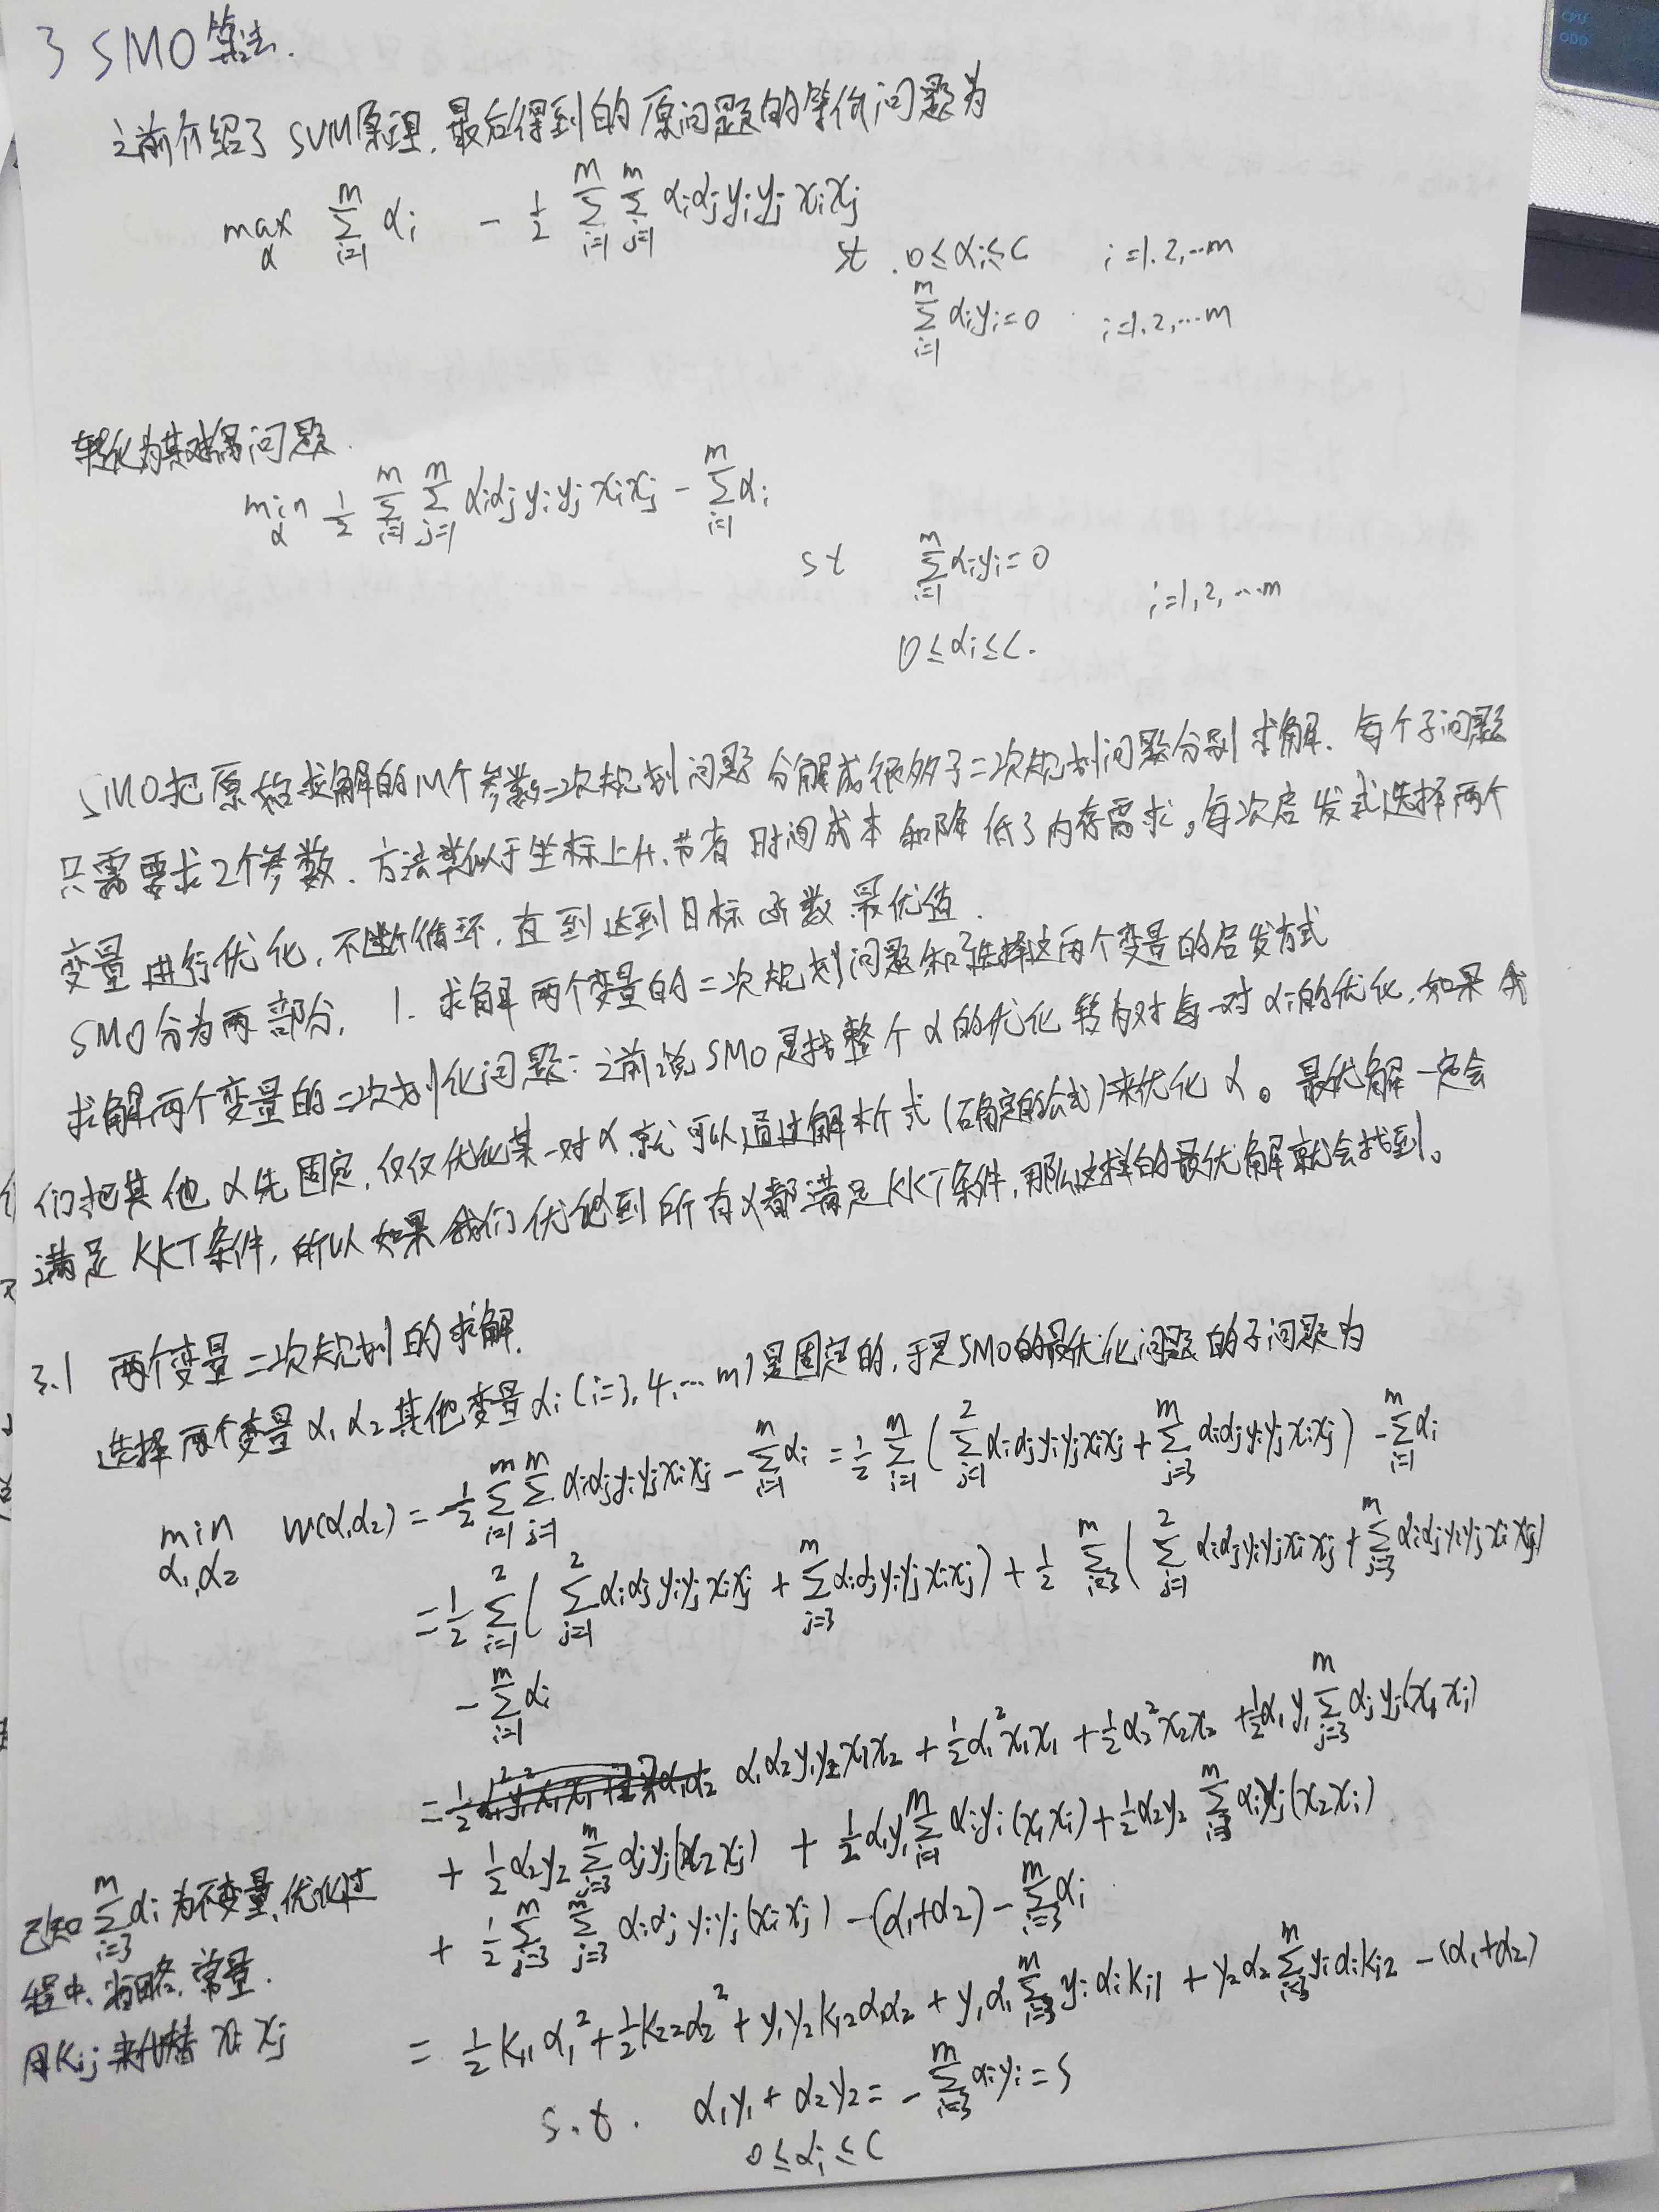 3 SMO算法.
之前介绍了SVM原理,最后得到的原问题的等价问题为
max_α Σ_{i=1}^{m} α_i - 1/2 Σ_{i=1}^{m} Σ_{j=1}^{m} α_i α_j y_i y_j x_i x_j
st. 0≤α_i≤C i=1.2,…m
Σ_{i=1}^{m} α_i y_i=0 i=1.2,…m
转化为其对偶问题.
min_α 1/2 Σ_{i=1}^{m} Σ_{j=1}^{m} α_i α_j y_i y_j x_i x_j - Σ_{i=1}^{m} α_i
st Σ_{i=1}^{m} α_i y_i=0
i=1,2,…m
0≤α_i≤C.
SMO把原始求解的M个参数二次规划问题分解成很多子二次规划问题分别求解.每个子问题
只需要求2个参数.方法类似于坐标上升.节省时间成本和降低了内存需求。每次启发式选择两个
变量进行优化,不断循环,直到达到目标函数最优值.
SMO分为两部分, 1.求解两个变量的二次规划问题和选择这两个变量的启发方式
求解两个变量的二次划化问题:之前说SMO是指整个α的优化转为对每一对α_i的优化,如果我
们把其他α先固定,仅仅优化某一对α,就可以通过解析式(确定的公式)来优化α。最优解一定会
满足KKT条件,所以如果我们优化到所有α都满足KKT条件,那么这样的最优解就会找到。
3.1 两个变量二次规划的求解.
选择两个变量α_1 α_2 其他变量α_i(i=3.4,…m)是固定的,于是SMO的最优化问题的子问题为
min_{α_1,α_2} W(α_1α_2) = 1/2 Σ_{i=1}^{m} Σ_{j=1}^{m} α_i α_j y_i y_j x_i x_j - Σ_{i=1}^{m} α_i = 1/2 Σ_{i=1}^{m} (Σ_{j=1}^{2} α_i α_j y_i y_j x_i x_j + Σ_{j=3}^{m} α_i α_j y_i y_j x_i x_j) - Σ_{i=1}^{m} α_i
= 1/2 Σ_{i=1}^{2} (Σ_{j=1}^{2} α_i α_j y_i y_j x_i x_j + Σ_{j=3}^{m} α_i α_j y_i y_j x_i x_j) + 1/2 Σ_{i=3}^{m} (Σ_{j=1}^{2} α_i α_j y_i y_j x_i x_j + Σ_{j=3}^{m} α_i α_j y_i y_j x_i x_j)
- Σ_{i=1}^{m} α_i
= α_1 α_2 y_1 y_2 x_1 x_2 + 1/2 α_1^2 x_1 x_1 + 1/2 α_2^2 x_2 x_2 + 1/2 α_1 y_1 Σ_{j=3}^{m} α_j y_j (x_1 x_j)
+ 1/2 α_2 y_2 Σ_{j=3}^{m} α_j y_j (x_2 x_j) + 1/2 α_1 y_1 Σ_{i=1}^{m} α_i y_i (x_1 x_i) + 1/2 α_2 y_2 Σ_{i=3}^{m} α_i y_j (x_2 x_i)
+ 1/2 Σ_{i=3}^{m} Σ_{j=3}^{m} α_i α_j y_i y_j (x_i x_j) - (α_1+α_2) - Σ_{i=3}^{m} α_i
已知 Σ_{i=3}^{m} α_i 为不变量,优化过
程中,省略常量.
用K_ij 来代替 x_i x_j
= 1/2 K_11 α_1^2 + 1/2 K_22 α_2^2 + y_1 y_2 K_12 α_1 α_2 + y_1 α_1 Σ_{i=3}^{m} y_i α_i K_i1 + y_2 α_2 Σ_{i=3}^{m} y_i α_i K_i2 - (α_1+α_2)
s.t. α_1 y_1 + α_2 y_2 = - Σ_{i=3}^{m} α_i y_i = S
0≤α_i≤C